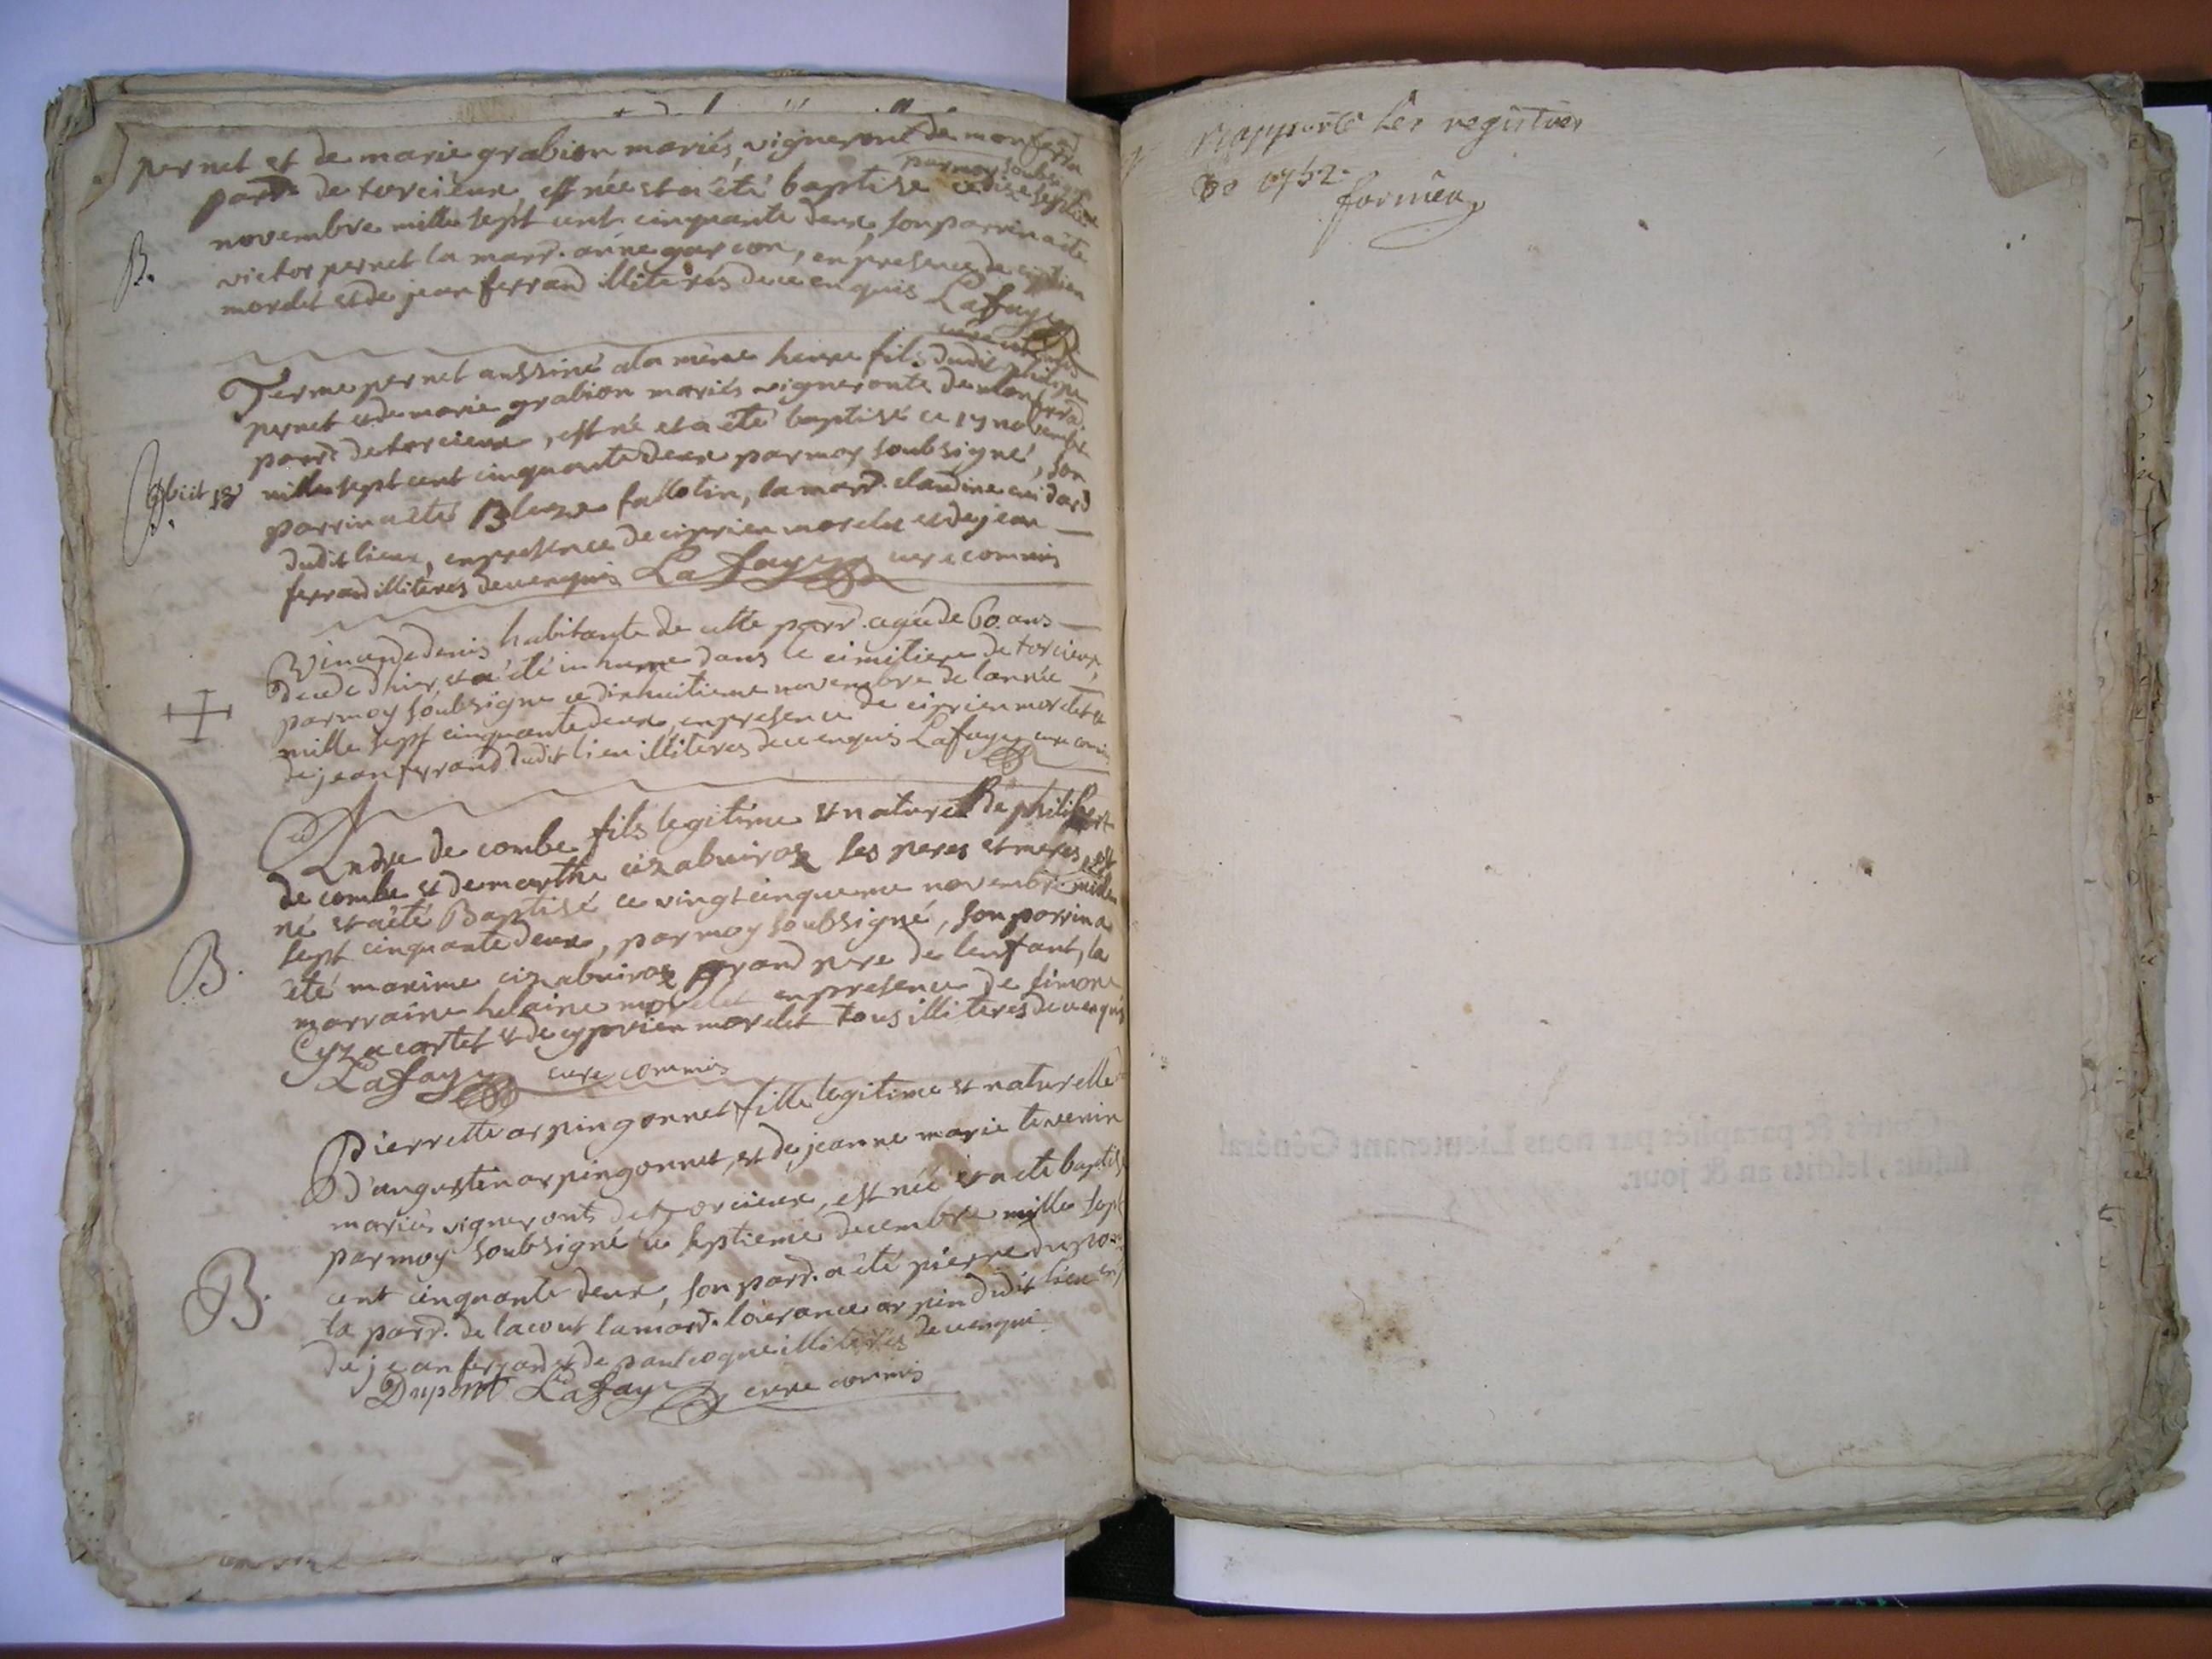 pernet et de marie grabion mariés, vigneront de monferra
parr. de torcieux, est née et a été baptise par moy soubsigné ce dixe septieme
novembre mille sept cent cinquante deux, son parrin a été
B.
victor pernet la marr. anne garcon, en presence de ciprien
mordet et de jean ferrand illiterés de ce enquis Lafaye
curé commis
Terme pernet aussi né a la même heure fils dudit philipe
pernet et de marie grabion mariés vigneronts de monferrad
parr. de torcieux, est né et a été baptisé ce 17 novembre
obiit 18
B.
mille sept cent cinquante deux par moy soubsigné, son
parrin a été Blaize fallotin, la marr. claudine cuidard
dudit lieux, en presence de ciprien mordet et de jean
ferrand illiterés de ce enquis Lafaye curé commis
denis habitante de cette parr. agée de 60 ans
decede d'hier et a été inhume dans le cimitiere de torcieux,
par moy soubsigne ce dixhuitieme novembre de l'année
mille sept cinquante deux, en presence de ciprien mordet et
de jean ferrand dudit lieu illiteres de ce enquis Lafaye cure commis
Andre de combe fils legitime et naturel de philibert
de combe et de marthe cizabuiroz ses peres et meres, est
né et a été Baptisé ce vingt cinquieme novembre mille
B.
sept cinquante deux, par moy soubsigné, son parrin a
été maxime cizabuiroz grand pere de l'enfant, la
marraine helaine mordet en presence de simone
Cyzacartet et de cyprien mordet tous illiterés de ce enquis
Lafaye cure commis
Pierrette arpin gonnet fille legitime et naturelle
D'augustin arpin gonnet, et de jeanne marie tevenin
mariés vigneronts de torcieux, est née et a ete baptisé
par moy soubsigné ce septieme decembre mille sept
B.
cent cinquante deux, son parr. a été pierre dupont
la parr. de lacout la marr. laurance arpin dudit lieu en p
de jean ferrand et de paul cogne illiterés de ce enqui
Dupont Lafaye cure commis
Rapporté les registres
de 1752.
formier
Cottés & paraphés par nous Lieutenant Général
susdit, lesdits an & jour.